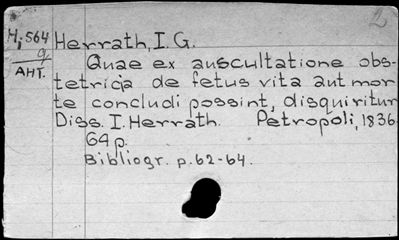 2
H,564 Herrath, I. G.
9
АНТ.
Quae ex auscultatione obs-
tetricia de fetus vita aut mor-
te concludi possint, disquiritur
Diss. I. Herrath. Petropoli, 1836.
64 p.
Bibliogr. p. 62-64.